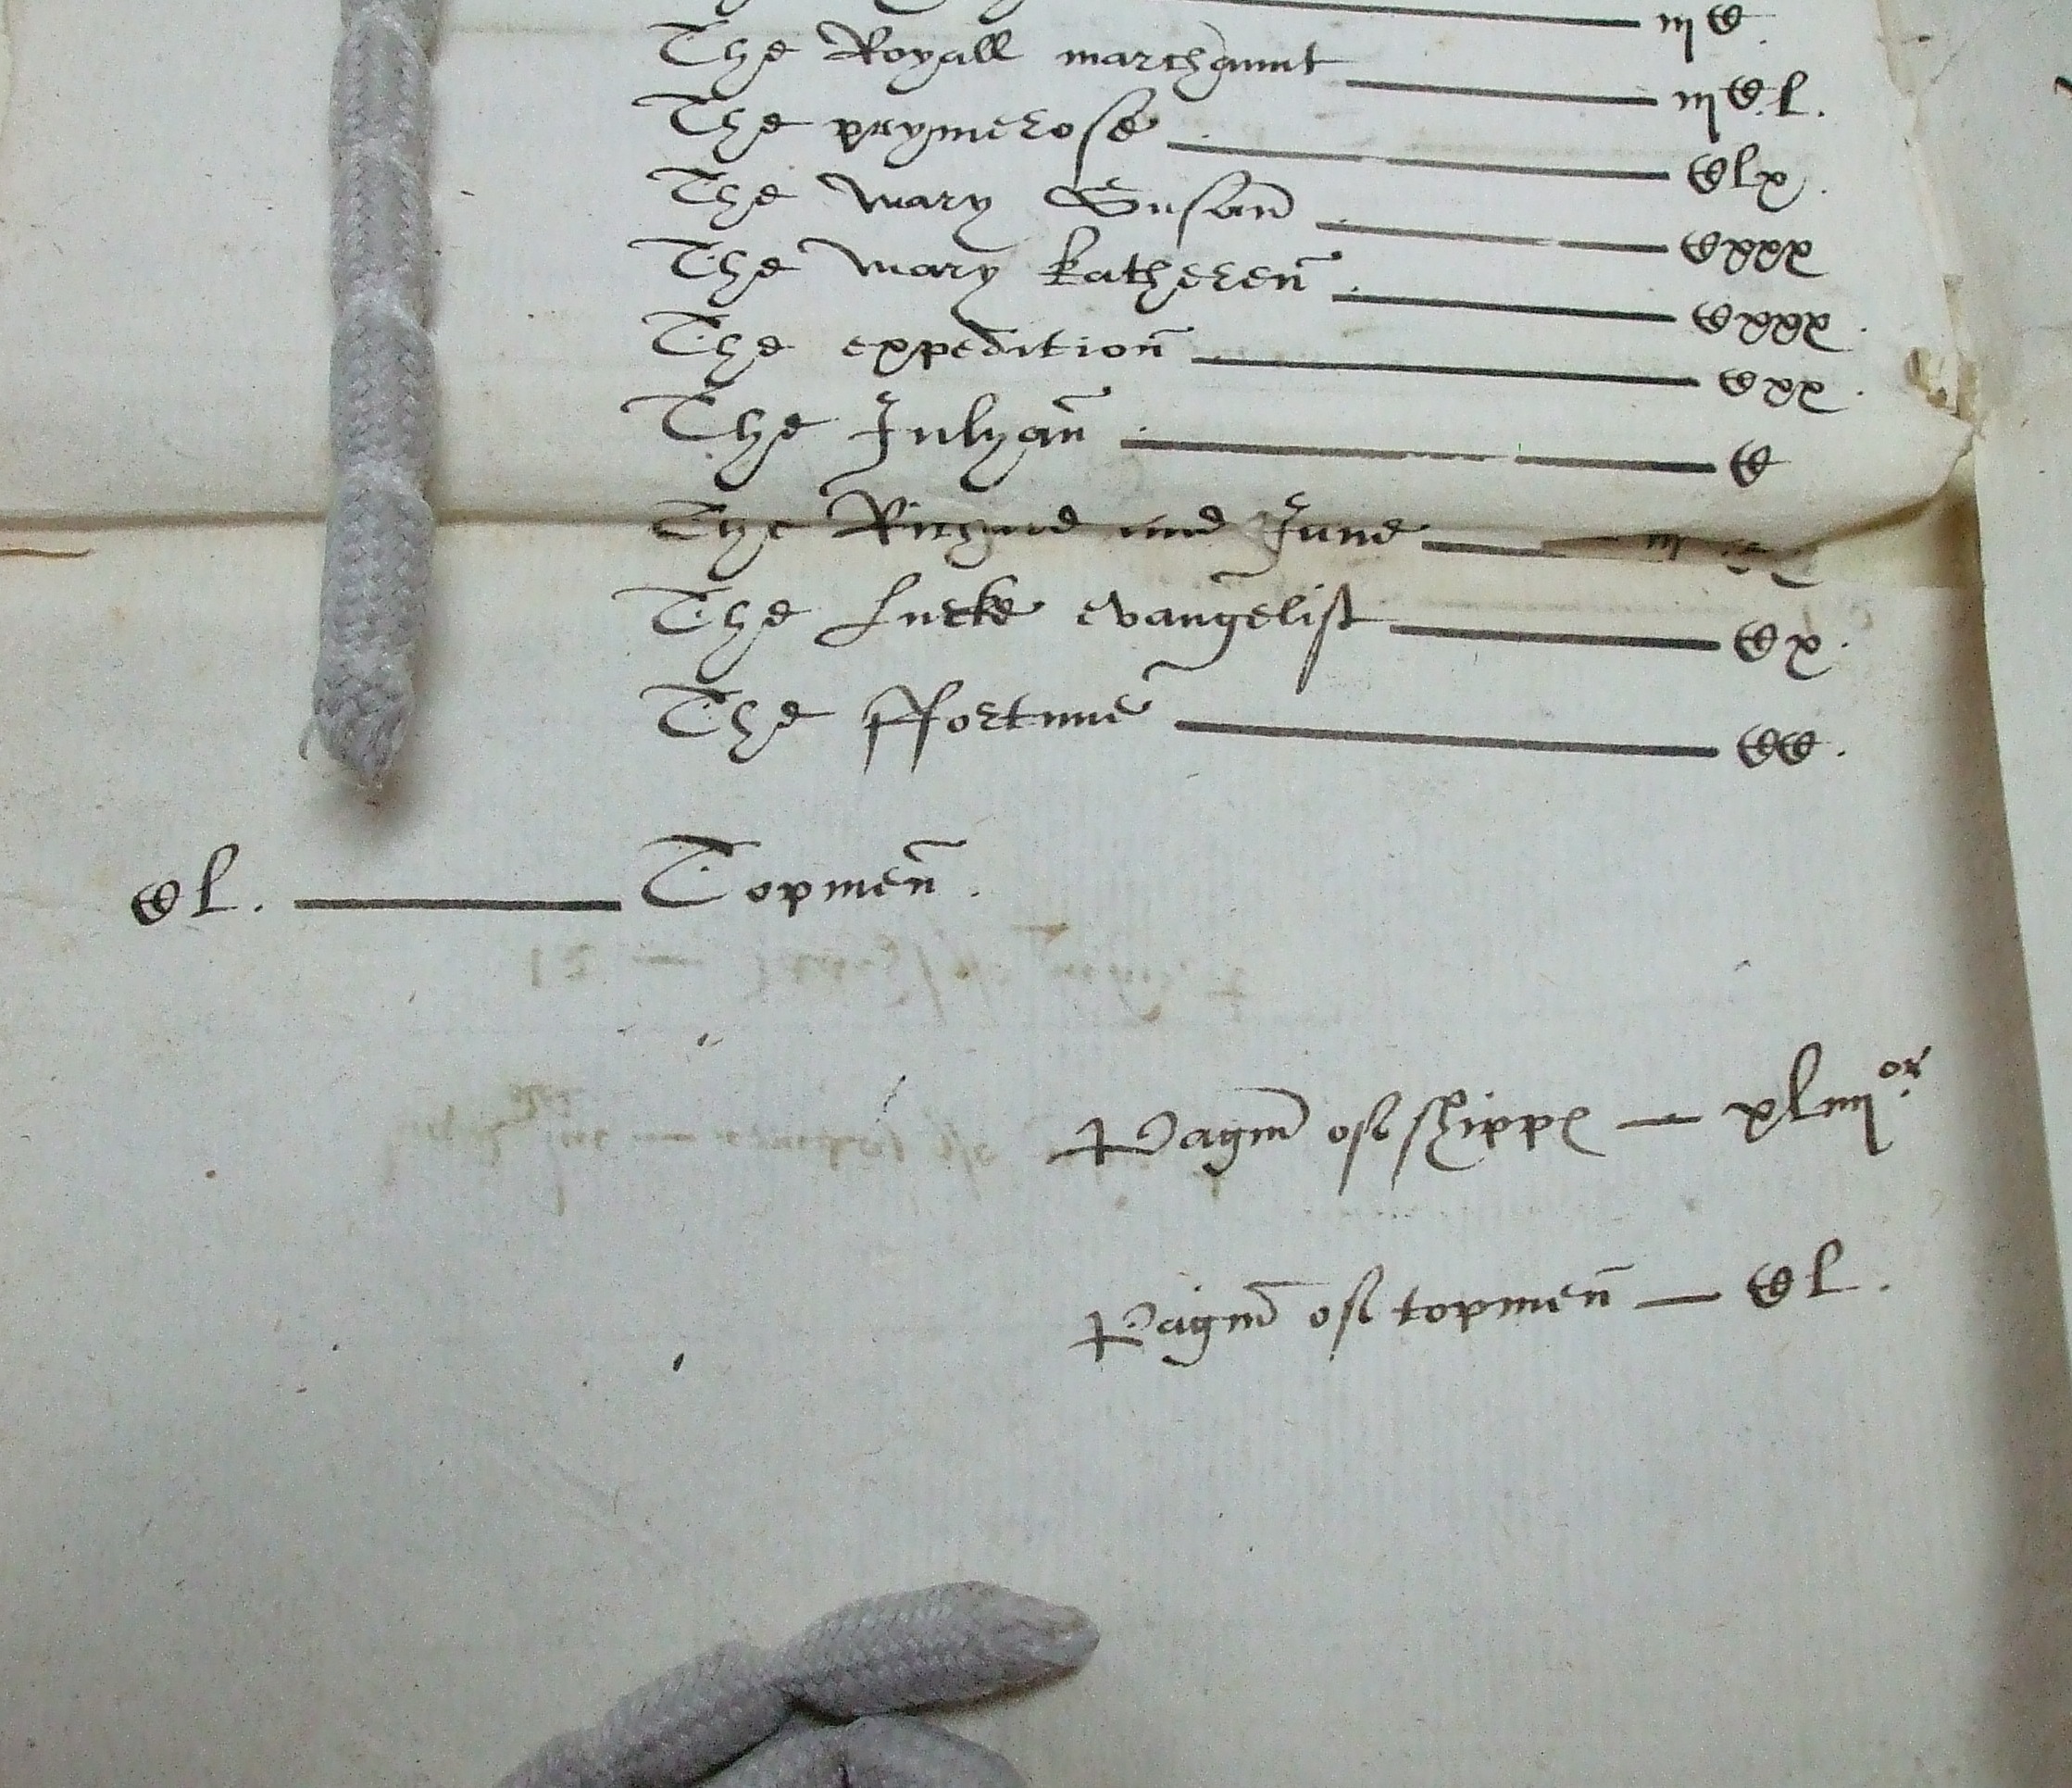 iijC
The Royall marchaunt iijC l.
The prymerose Clx.
The mary Susan̄ Cxxx
The mary katheren̄ Cxxx.
The expedition̄ Cxx.
The Julyan̄ C
The Richard and Jane
The Lucke evangelist Cx.
The ffortune CC.
Cl. Topmen̄.
Pagin̄ of shippes — xliiij or
Pagin̄ of topmen̄ — Cl.